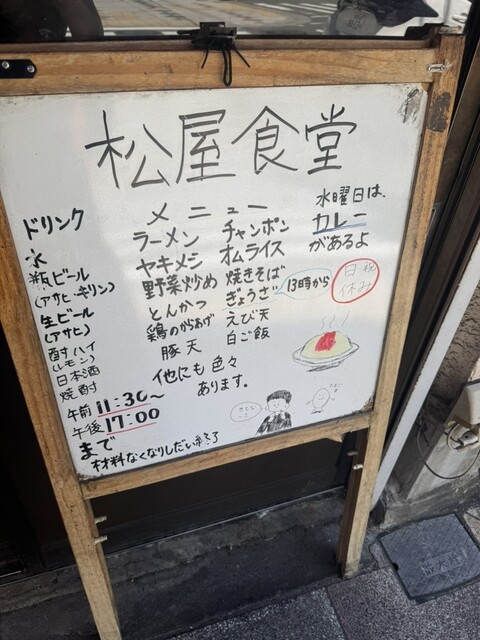 松屋食堂
メニュー
ラーメン
ヤキメシ
野菜炒め
とんかつ
鶏のからあげ
豚天
チャンポン
オムライス
焼きそば
ぎょうざ
13時から
えび天
白ご飯
他にも色々
あります。
水曜日は、
カレー
があるよ
日・祝
休み
ドリンク
氷
瓶ビール
(アサヒ・キリン)
生ビール
(アサヒ)
酎ハイ
(レモン)
日本酒
焼酎
午前11:30〜
午後17:00
まで
材料なくなりしだい終了